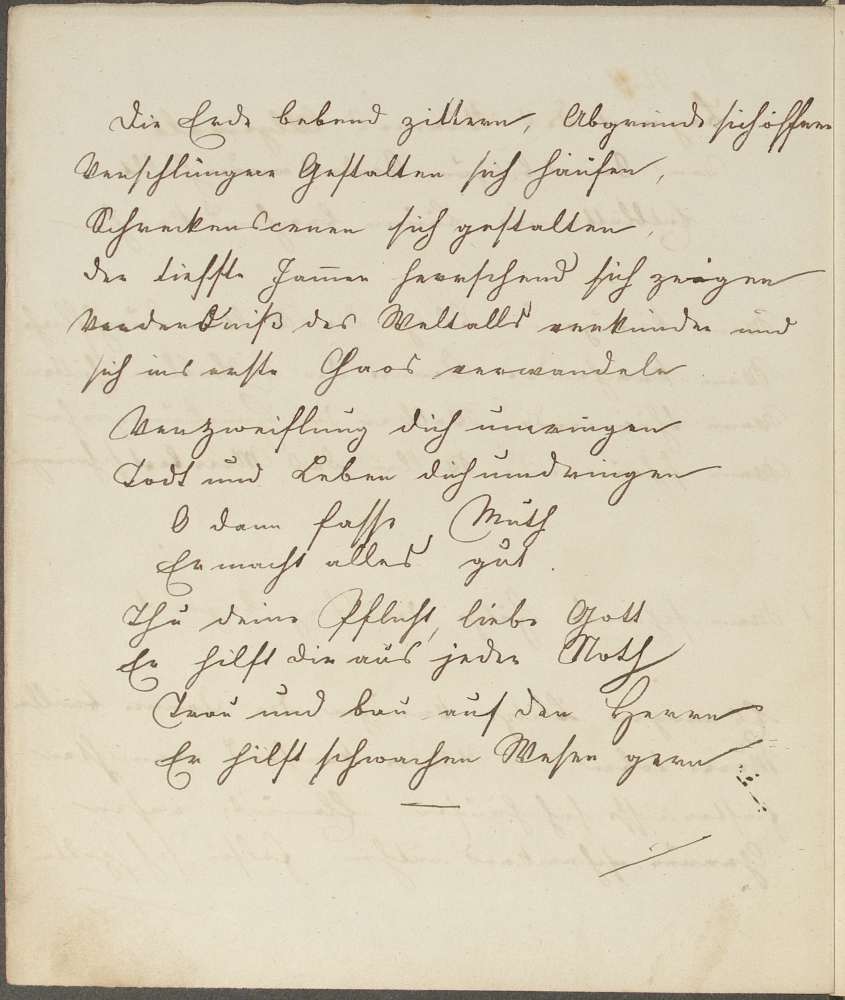 Die Erde bebend zittern, Abgründe sich öffnen
Verschlungene Gestalten sich häufen,
Schreckenscenen sich gestalten,
Der tiefste Jammer herrschend sich zeigen
Verderbniß des Weltalls verkünden und
sich ins erste Chaos verwandeln
Verzweiflung dich umringen
Todt und Leben dich umdringen
O dann fasse Muth
Er macht alles gut.
Thu deine Pflicht, liebe Gott
Er hilft dir aus jeder Noth
Trau und bau auf den Herrn
Er hilft schwachen Wesen gern